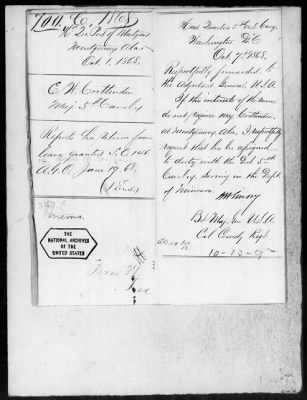 700. C. 1868
Hd Qrs Post of Montgomery
Montgomery Ala
Oct. 1. 1868.
E. W. Crittenden
Maj 5th Cavalry
Reports his return from
leave granted S.O. 146
A.G.O. June 19. 68.
Memo.
THE
NATIONAL ARCHIVES
OF THE
UNITED STATES
Head Quarters 5th U.S. Cavy.
Washington D.C.
Oct. 7th 1868.
Respectfully forwarded to
the Adjutant General, U.S.A.
If the interests of the service
do not require Maj. Crittenden,
at Montgomery Ala, I respectfully
request that he be assigned
to duty with the Det. 5th
Cavalry serving in the Dept.
of Missouri.
W H Emory
Bt. Maj. Gen. U.S.A.
Col. Comdg Regt.